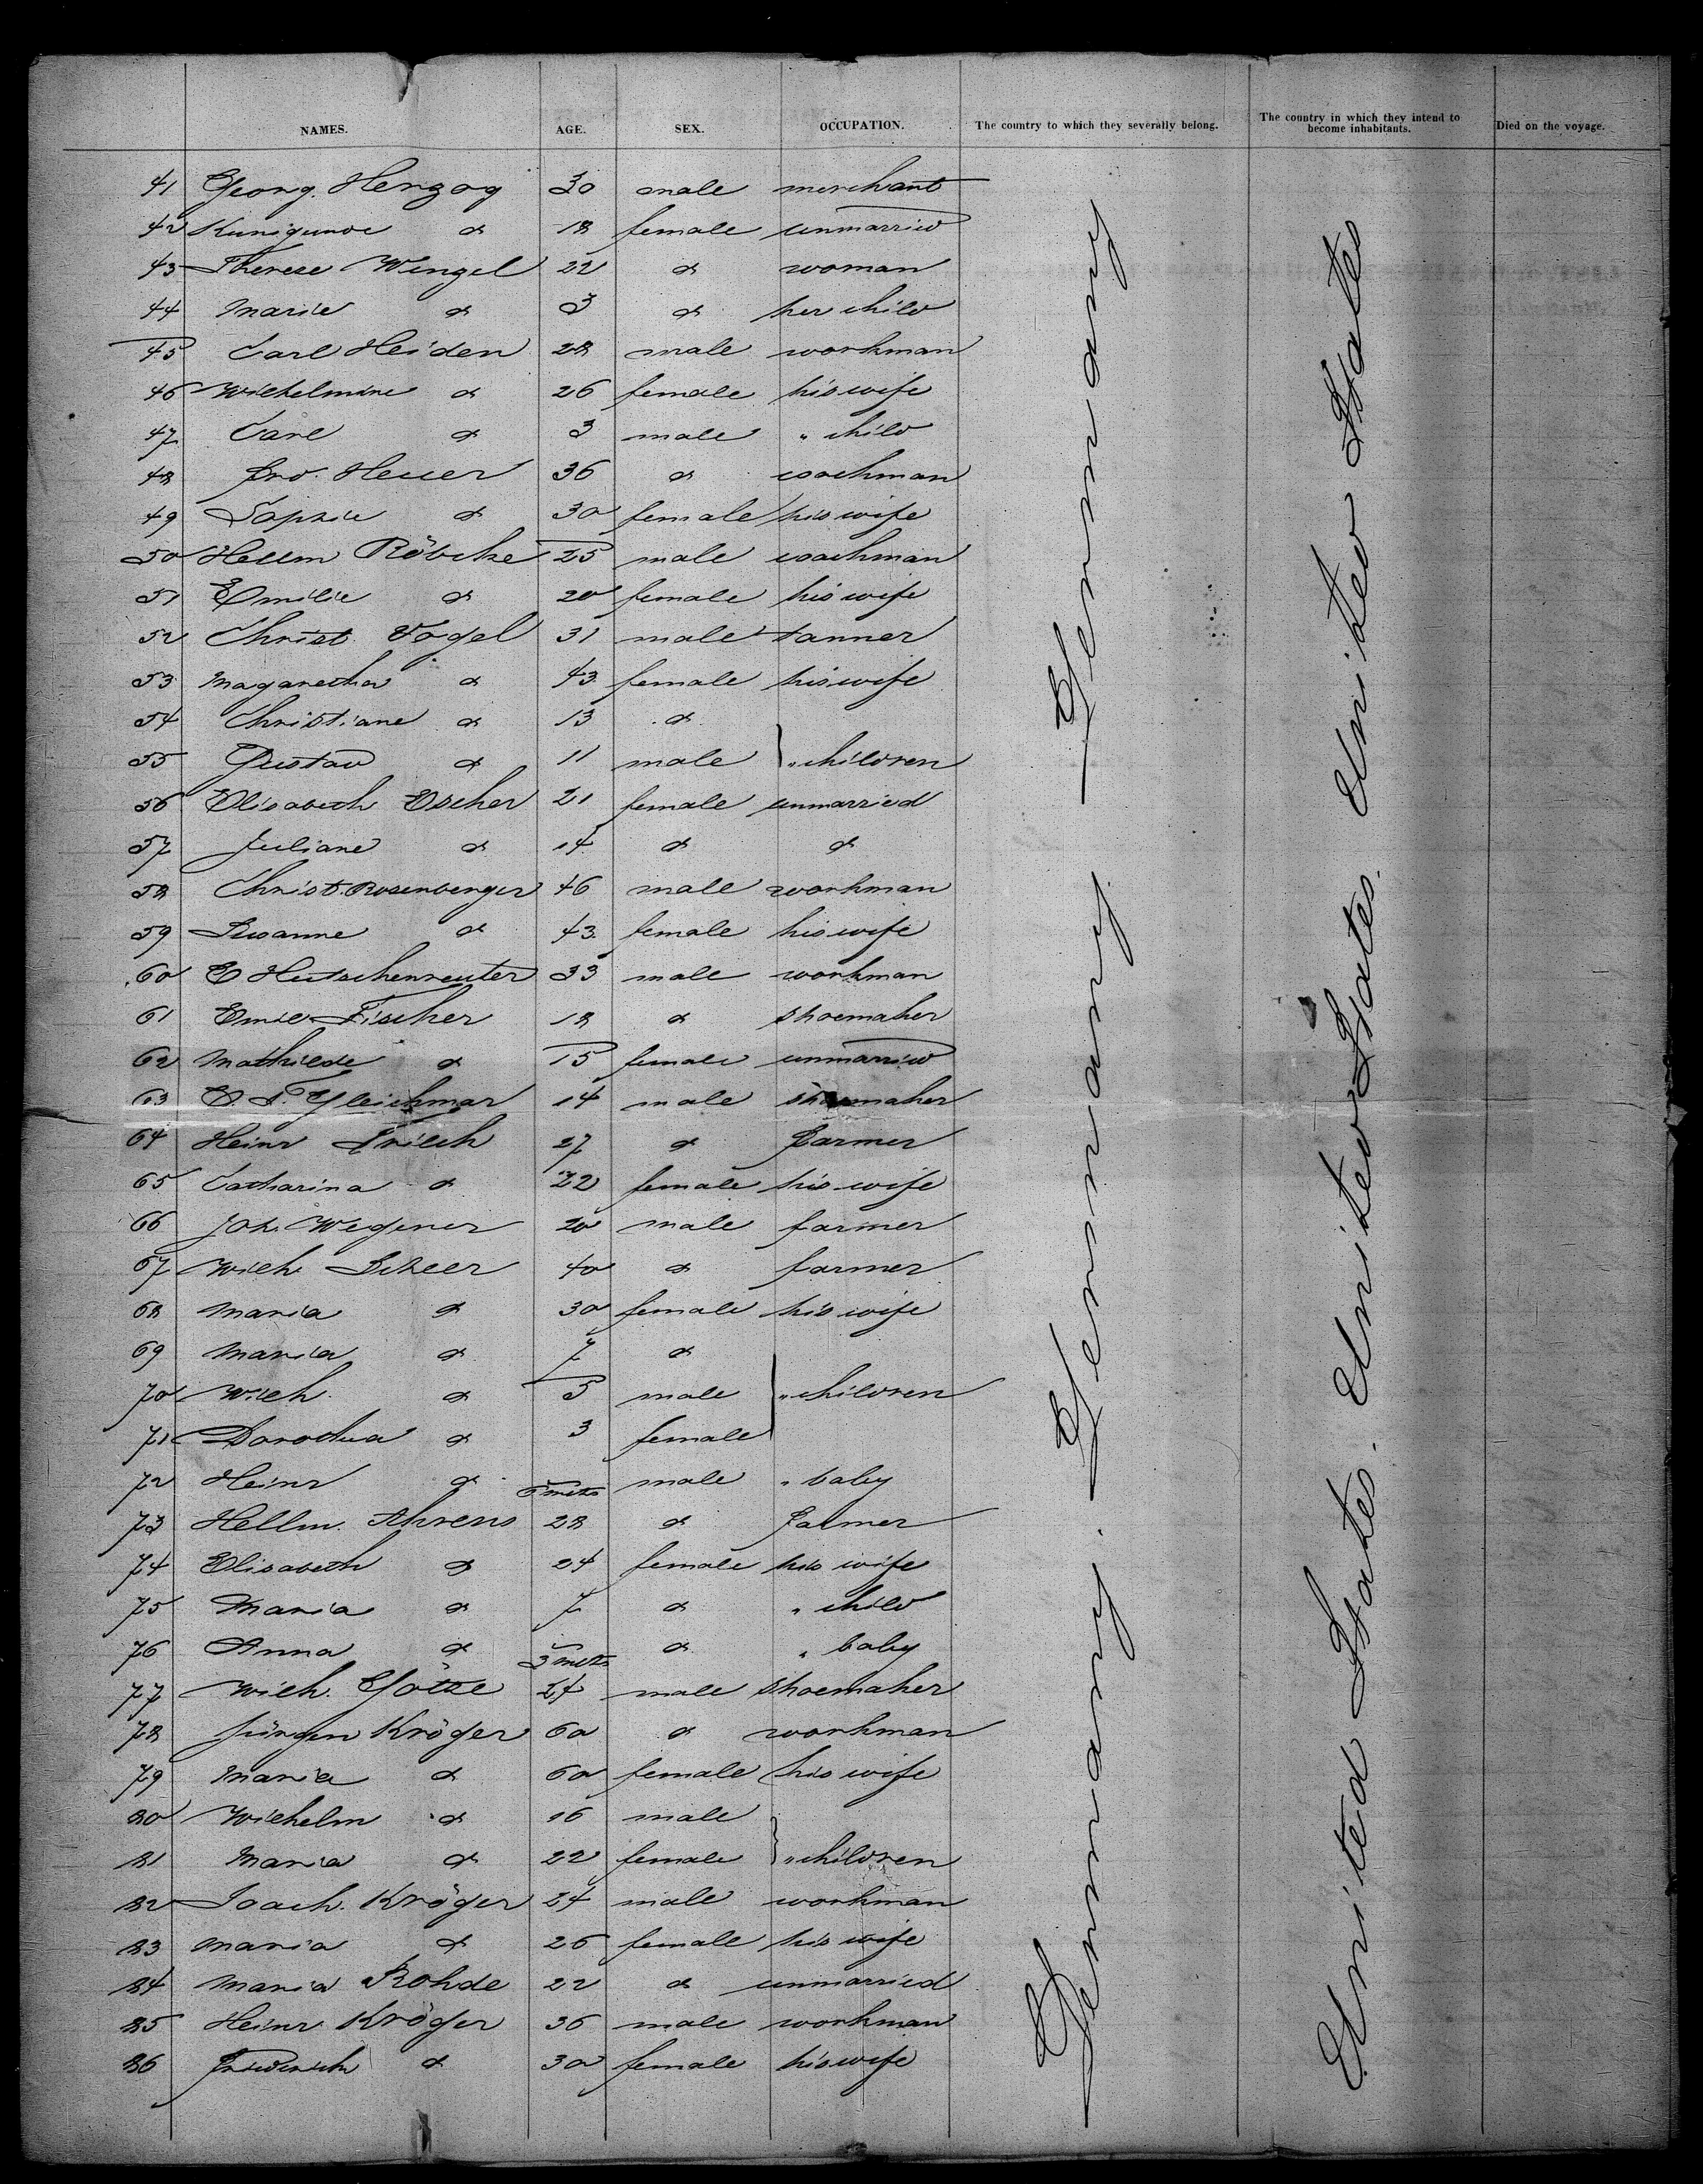 NAMES. AGE. SEX. OCCUPATION. The country to which they severally belong. The country in which they intend to become inhabitants. Died on the voyage.
41 Georg. Herzog 30 male merchant
42 Kunigunde do 18 female unmarried
43 Therese Wengel 22 do woman
44 Marie do 3 do her child
45 Carl Heiden 28 male workman
46 Wilhelmine do 26 female his wife
47 Carl do 3 male " child
48 Frd. Heuer 36 do workman
49 Sophie do 30 female his wife
50 Hellm Rödcke 25 male workman
51 Emilie do 20 female his wife
52 Christ. Vogel 31 male tanner
53 Magaretha do 43 female his wife
54 Christiane do 13 do
55 Gustav do 11 male " children
56 Elisabeth Escher 21 female unmarried
57 Juliane do 14 do do
58 Christ. Rosenberger 46 male workman
59 Susanne do 43 female his wife
60 E Hutschenreuter 33 male workman
61 Emil Fischer 18 do shoemaker
62 Mathilde do 15 female unmarried
63 E. F. Gleichmar 14 male shoemaker
64 Heinr 27 do farmer
65 Catharina do 22 female his wife
66 Joh. Wegener 20 male farmer
67 Wilh Scheer 40 do farmer
68 Maria do 30 female his wife
69 Maria do 7 do
70 Wilh. do 5 male " children
71 Dorothea do 3 female
72 Heinr do 6 mths male " baby
73 Hellm. Ahrens 28 do farmer
74 Elisabeth do 24 female his wife
75 Maria do 7 do " child
76 Anna do 3 mths do " baby
77 Wilh. Götze 24 male shoemaker
78 Jürgen Kröger 60 do workman
79 Maria do 60 female his wife
80 Wilhelm do 16 male
81 Maria do 22 female " children
82 Joach. Kröger 24 male workman
83 Maria do 26 female his wife
84 Maria Rohde 22 do unmarried
85 Heinr Kröger 36 male workman
86 Friederich do 30 female his wife
Germany. Germany. Germany
United States. United States. United States